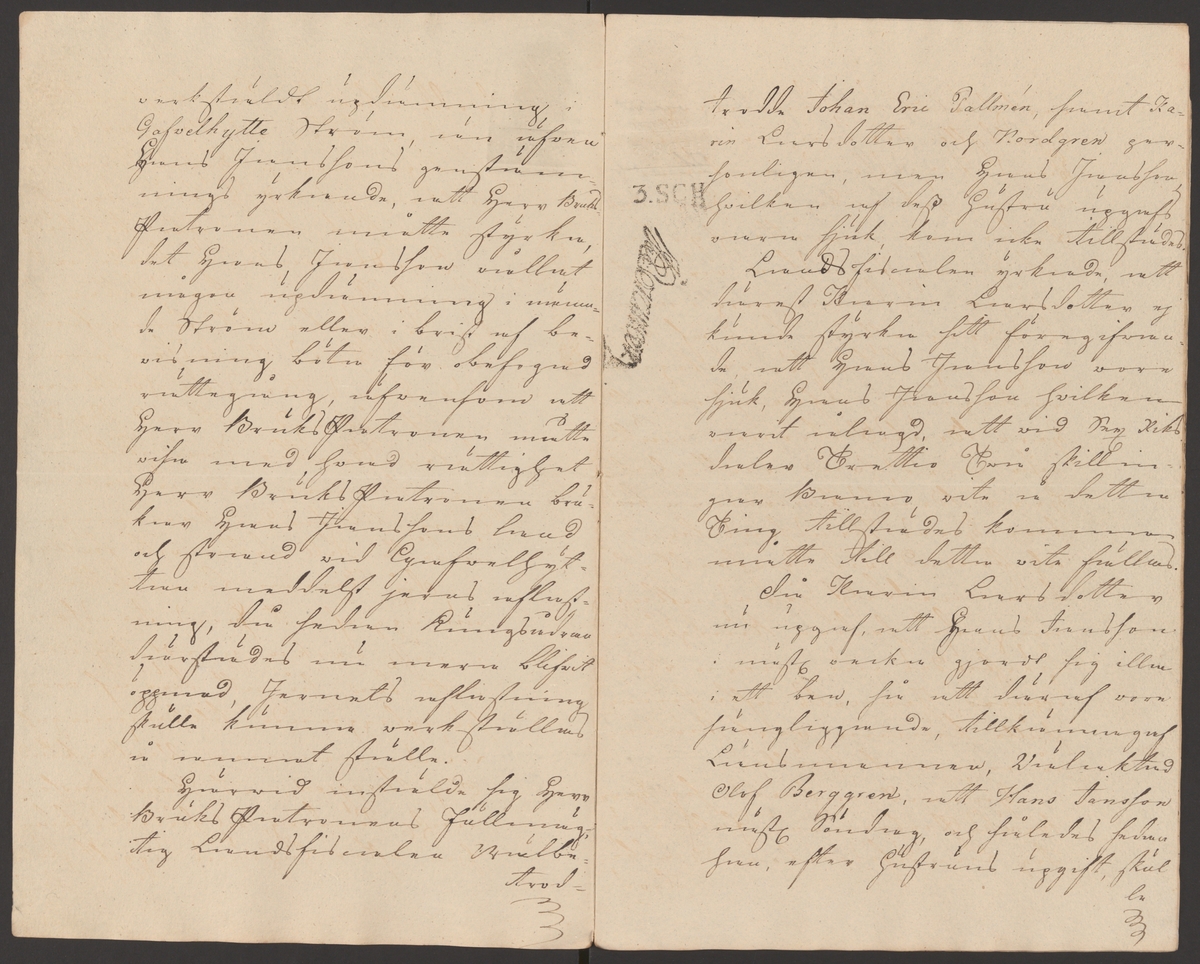 verkstäldt updämning i
Gafvelhytte Ström, än äfven
Hans Janssons genstäm¬
nings yrkande, att Herr Bruks
Patronen måtte styrka,
det Hans Jansson vållat
någon updämning i nämn¬
de Ström eller i brist af be¬
visning, böta för obefogad
rättegång, äfvensom att
Herr Bruks Patronen måtte
visa med hvad rättighet
Herr Bruks Patronen bru¬
kar Hans Janssons land
och strand vid Grafvelhyt¬
tan meddelst jerns aflast¬
ning, då sedan Kungsådran
därstädes nu mera blifvit
öppnad, Jernets aflastning
skulle kunna verkställas
å annat ställe.
Härvid instälde sig Herr
Bruks Patronens Fullmäg¬
tig Landsfiscalen Välbe¬
trod¬
trodde Johan Eric Tallmén, samt Ka¬
rin Larsdotter och Nordgren per¬
sonligen, men Hans Jansson,
hvilken af dess Hustru upgafs
vara sjuk, kom icke tillstädes.
Landsfiscalen yrkade, att
därest Karin Larsdotter ej
kunde styrka sitt föregifvan¬
de, att Hans Jansson vore
sjuk, Hans Jansson hvilken
varit ålagd, att vid Sex Riks
daler Trettio Två skillin¬
gar Banco vite å detta
Ting tillstädes komma
måtte till detta vite fällas.
Då Karin Larsdotter
nu upgaf, att Hans Jansson
i näst vecka gjordt sig illa
i ett ben, så att däraf vore
sängliggande, tillkännagaf
Länsmannen, Välacktad
Olof Berggren, att Hans Jansson
näst Söndag, och således sedan
han, efter Hustruns upgift, skul
le
3. SCH